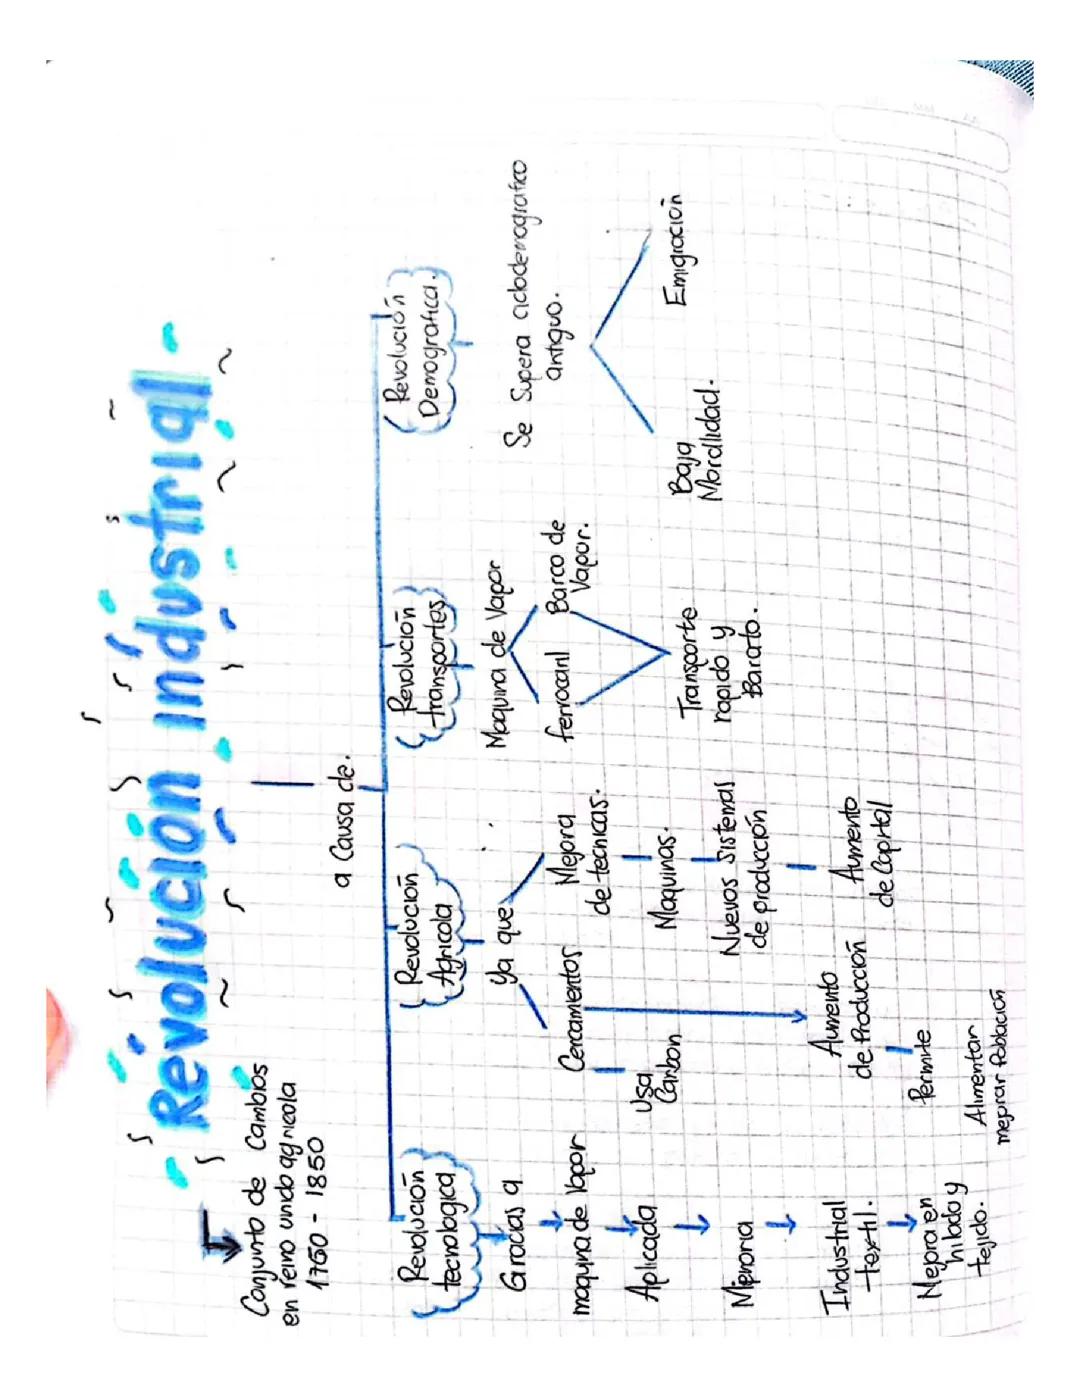 Revolución industrial
Conjunto de Cambios
en reino unido agricola
1750 - 1850
a Causa de.
Revolución
tecnologica
Gracias a
maquina de Vapor
Aplicada
Mineria
Industrial
textil.
Mejora en
hilado y
tejido.
Revolucion
Agricola
Ya que
Cercamientos
Usa
Carbon
Aumento
de Producción
Permite
Alimentar
mejorar Población
Mejora
de tecnicas.
Maquinas.
Nuevos Sistemas
de producción
Aumento
de Capital
Revolución
transportes
Maquina de Vapor
ferrocarril
Barco de
Vapor.
Transporte
rapido y
Barato.
Revolución
Demografica.
Se Supera ciclodemografico
antiguo.
Baja
Mordlidad.
Emigración